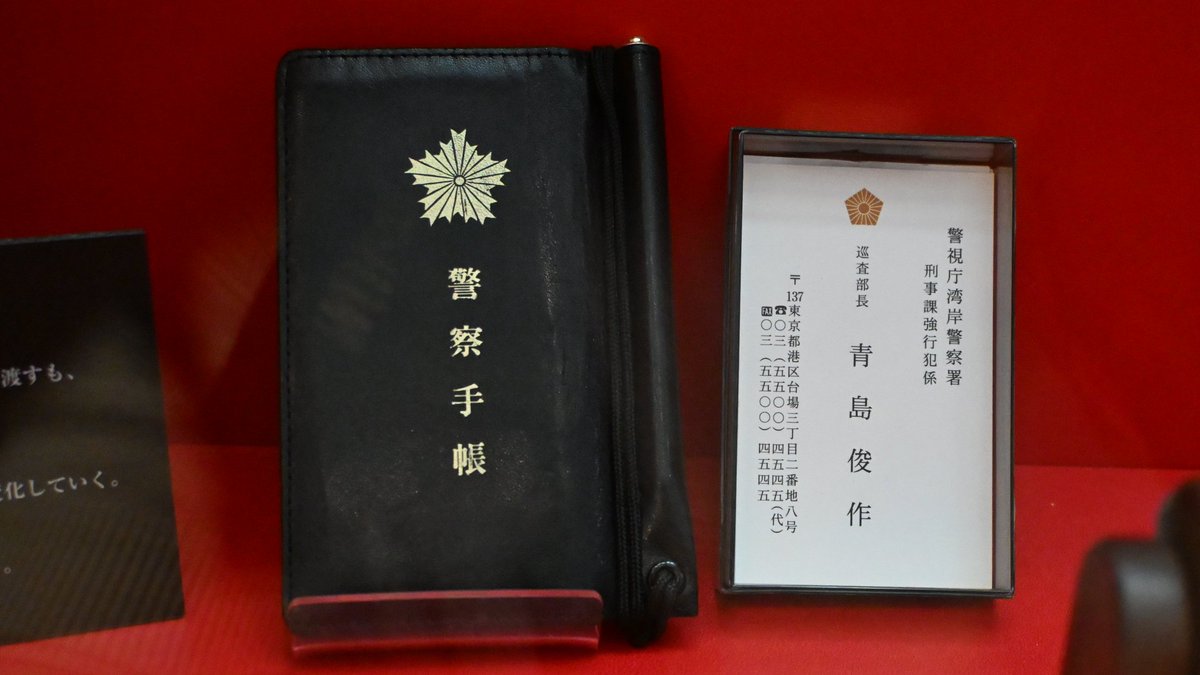 渡すも、
化していく。
。
警察手帳
警視庁湾岸警察署
刑事課強行犯係
巡査部長 青島俊作
〒137東京都港区台場三丁目二番地八号
☎〇三(五五〇〇)四五四五(代)
FAX〇三(五五〇〇)四五四五